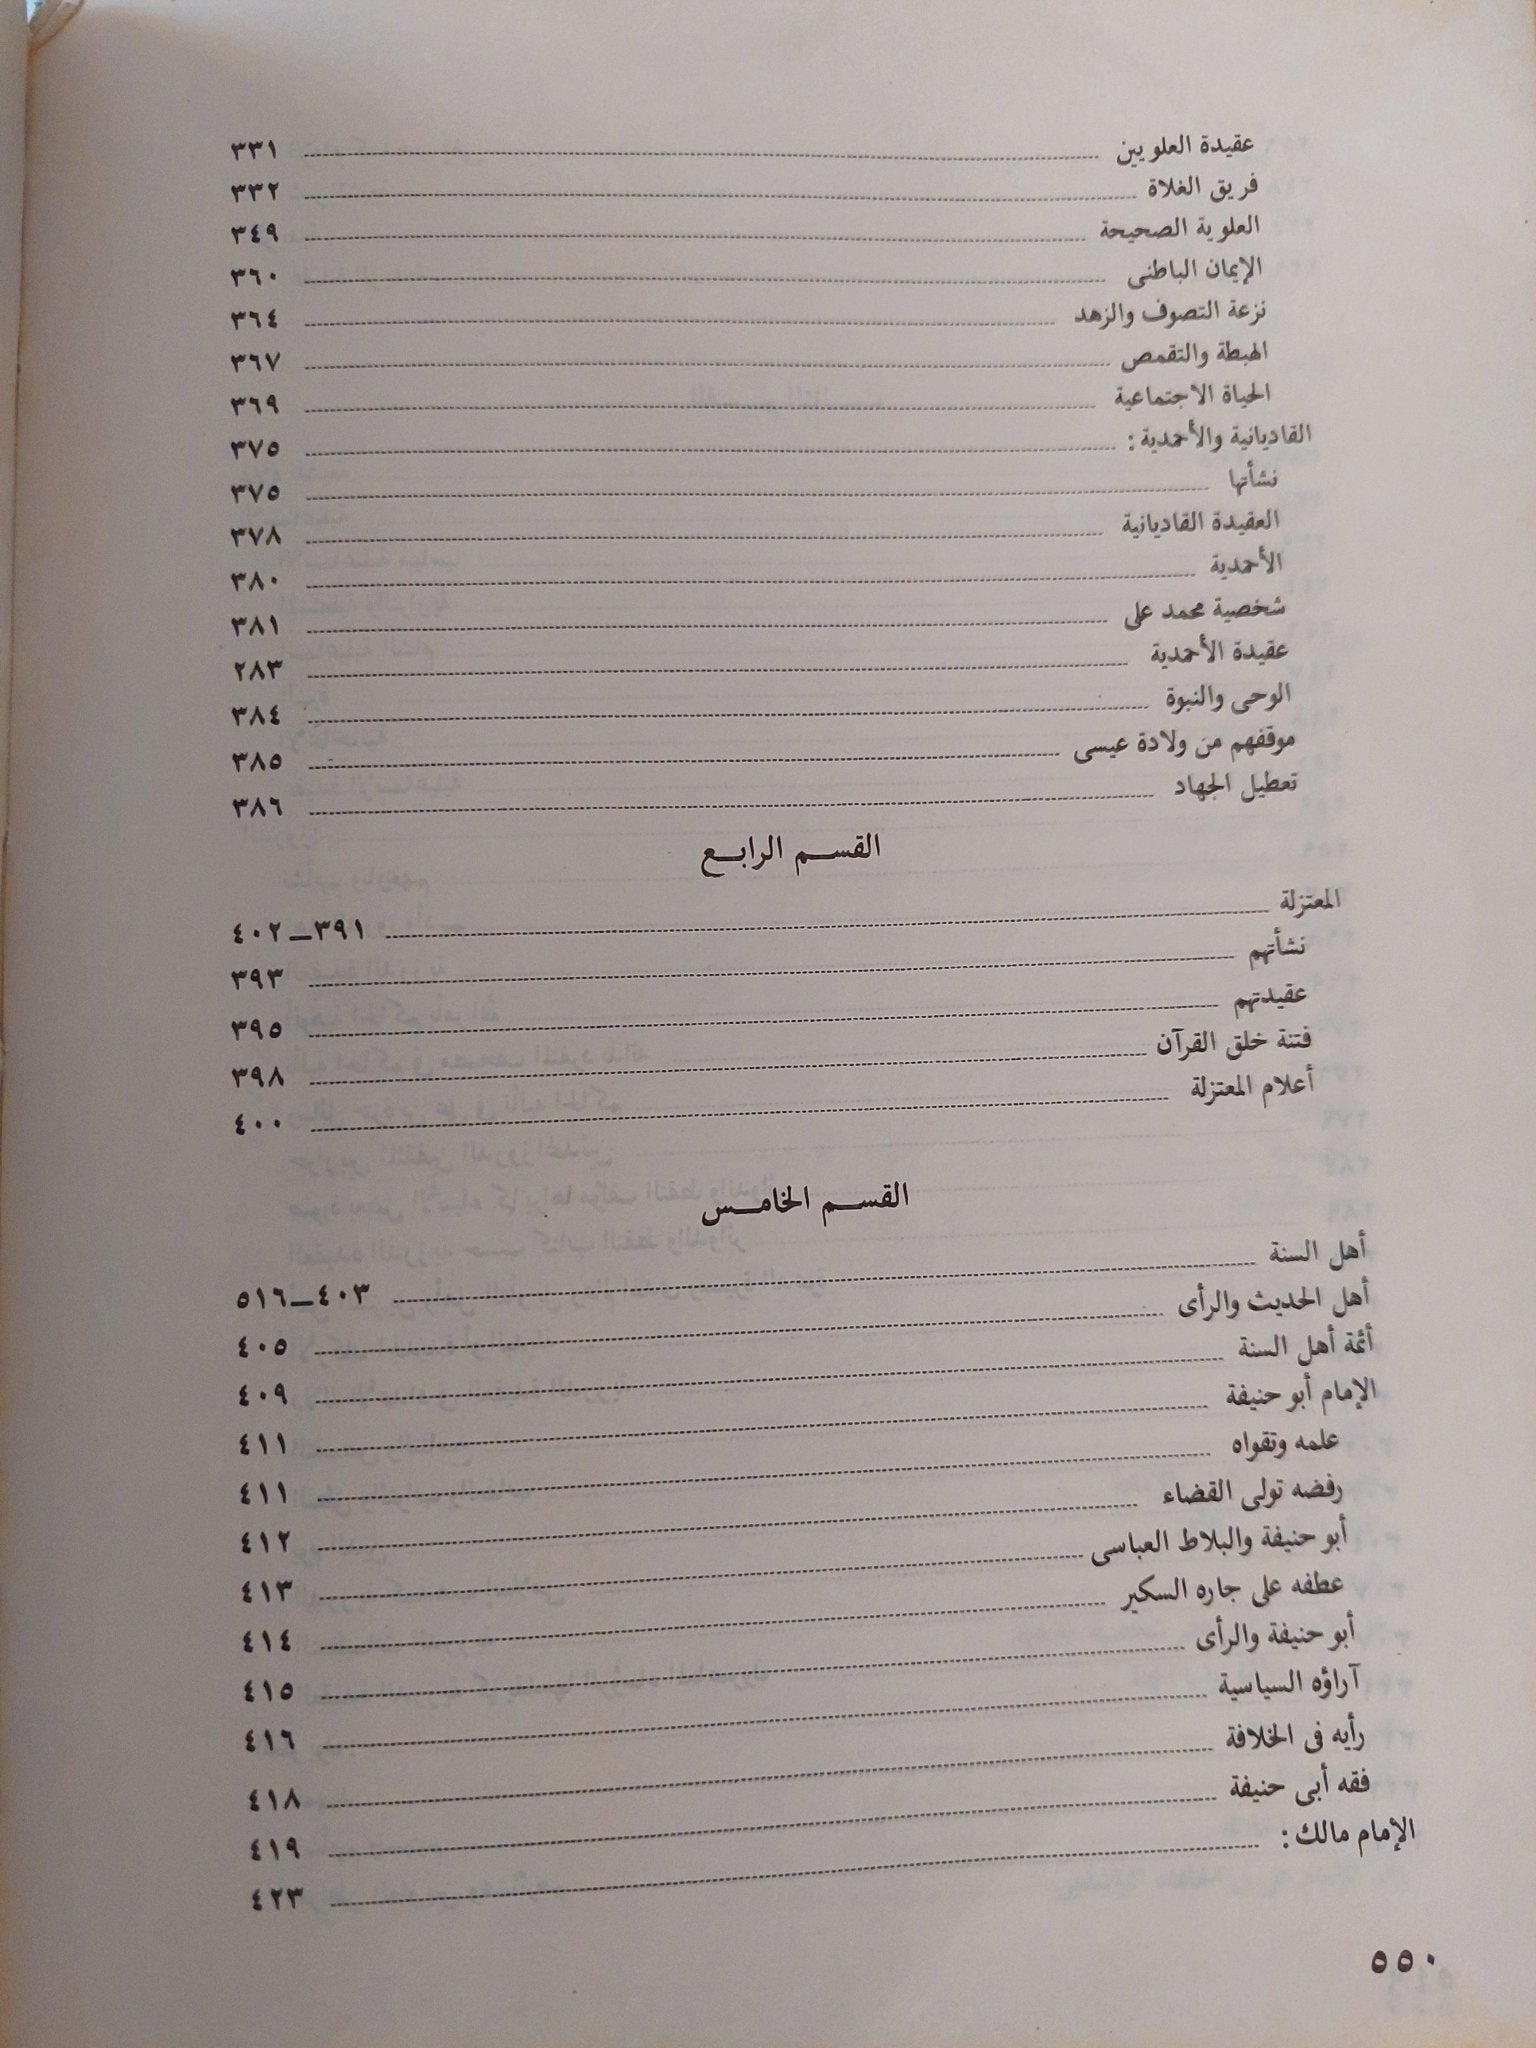 عقيدة العلويين ٣٣١
فريق الغلاة ٣٣٢
العلوية الصحيحة ٣٤٩
الإيمان الباطنى ٣٦٠
نزعة التصوف والزهد ٣٦٤
الهبطة والتقمص ٣٦٧
الحياة الاجتماعية ٣٦٩
القاديانية والأحمدية : ٣٧٥
نشأتها ٣٧٥
العقيدة القاديانية ٣٧٨
الأحمدية ٣٨٠
شخصية محمد على ٣٨١
عقيدة الأحمدية ٢٨٣
الوحى والنبوة ٣٨٤
موقفهم من ولادة عيسى ٣٨٥
تعطيل الجهاد ٣٨٦
القسم الرابع
المعتزلة ٣٩١ــ٤٠٢
نشأتهم ٣٩٣
عقيدتهم ٣٩٥
فتنة خلق القرآن ٣٩٨
أعلام المعتزلة ٤٠٠
القسم الخامس
أهل السنة ٤٠٣ــ٥١٦
أهل الحديث والرأى ٤٠٥
أئمة أهل السنة ٤٠٩
الإمام أبو حنيفة ٤١١
علمه وتقواه ٤١١
رفضه تولى القضاء ٤١٢
أبو حنيفة والبلاط العباسى ٤١٣
عطفه على جاره السكير ٤١٤
أبو حنيفة والرأى ٤١٥
آراؤه السياسية ٤١٦
رأيه فى الخلافة ٤١٨
فقه أبى حنيفة ٤١٩
الإمام مالك : ٤٢٣
٥٥٠